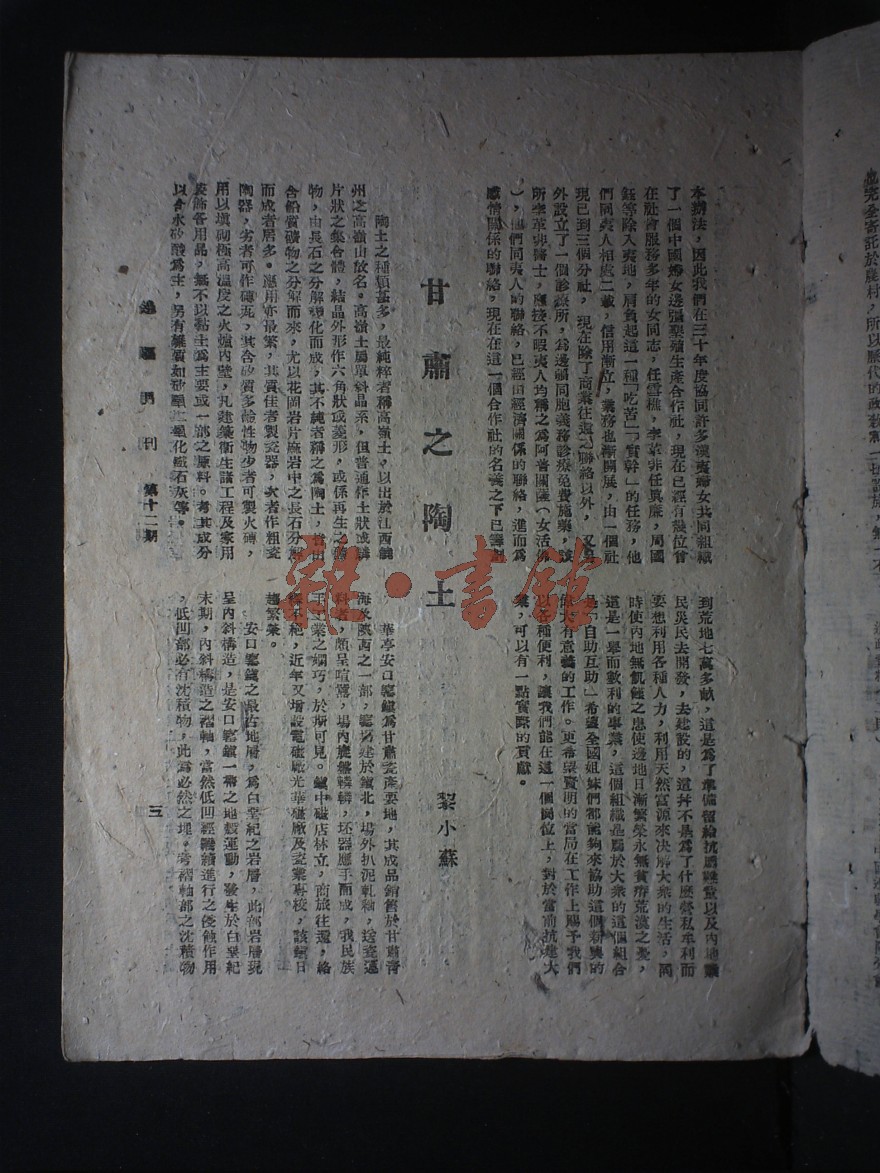 本辦法，因此我們在三十年度協同許多漢夷婦女共同組織
了一個中國婦女邊疆墾殖生產合作社，現在已經有幾位曾
在社會服務多年的女同志，任雪樵，李葦非任眞廉，周國
鈺等除入夷地，肩負起這一種「吃苦」「實幹」的任務，他
們同夷人相處二載，信用漸立，業務也漸開展，由一個社
現已到三個分社，現在除了商業往還之聯絡以外，又另
外設立了一個診療所，為邊疆同胞義務診療免費施藥，該
所李葦非醫士，應接不暇夷人均稱之為阿普國薩（女活佛
），他們同夷人的聯絡，已經由經濟關係的聯絡，進而為
感情關係的聯絡，現在在這一個合作社的名義之下已籌劃
到荒地七萬多畝，這是為了準備留給抗屬難童以及內地難
民災民去開發，去建設的，這幷不是為了什麼營私牟利而
要想利用各種人力，利用天然富源來决解大衆的生活，同
時使內地無飢餓之患使邊地日漸繁榮永無貧瘠荒漠之憂，
這是一舉而數利的事業，這個組織是屬於大衆的這個組合
是「自助互助」希望全國姐妹們都能夠來協助這個新興的
偉大有意義的工作。更希崇賢明的當局在工作上賜予我們
以各種便利，讓我們能在這一個崗位上，對於當前抗建大
業，可以有一點實際的貢獻。
甘肅之陶土
黎小蘇
陶土之種類甚多，最純粹者稱高嶺土，以出於江西饒
州之高嶺山故名。高嶺土屬單斜晶系，但普通作土狀或鱗
片狀之集合體，結晶外形作六角狀或菱形，或係再生之礦
物，由長石之分解變化而成，其不純者稱之為陶土，當由
含鋁質礦物之分解而來，尤以花岡岩片麻岩中之長石分解
而成者居多。應用亦最繁，其質佳者製瓷器，次者作粗瓷
陶器，劣者可作磚瓦，其含矽質多鹼性物少者可製火磚，
用以塡砌極高溫度之火爐內壁，凡建築衛生諸工程及家用
裝飾各用品，無不以黏土為主要或一部之原料。考其成分
以含水矽酸為主，另有雜質如砂礫二氧化鐵石灰等。
華亭安口窰鎮為甘肅瓷產要地，其成品銷售於甘肅青
海及陝西之一部，窰場建於鎮北，場外扒泥軋軸，送瓷運
料者，頗呈喧囂，場內旋盤轔轔，坯器應手而成，我民族
手工業之嫻巧，於斯可見。鎮中磁店林立，商旅往還，絡
繹不絕，近年又增設電磁廠光華磁廠及瓷業專校，該鎮日
趨繁榮。
安口窰鎮之最古地層，為白堊紀之岩層，此部岩層現
呈內斜構造，是安口窰鎮一帶之地殼運動，發生於白堊紀
末期，內斜構造之褶軸，當然低凹經繼續進行之侵蝕作用
，低凹部必有沈積物，此為必然之理，考褶軸部之沈積物
邊疆明刊　第十二期
三
雜·書館